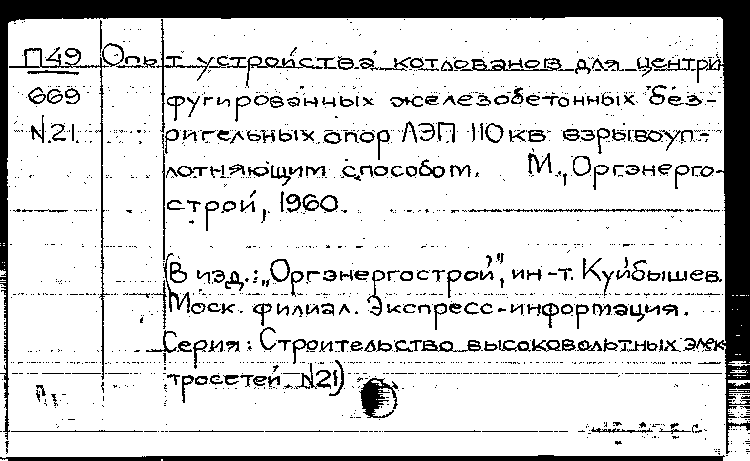 П49 Опыт устройства котлованов для центри
669 фугированных железобетонных без-
N.21. ригельных опор ЛЭП 110 кв взрывоуп-
лотняющим способом. М., Оргэнерго-
строй, 1960.
(В изд.: „Оргэнергострой", ин-т. Куйбышев.
Моск. филиал. Экспресс-информация.
Серия: Строительство высоковольтных элек
тросетей. N21)